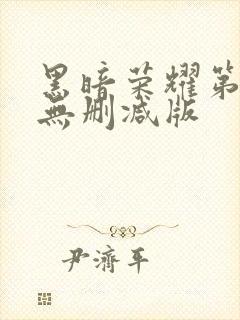 黑暗荣耀第
無删减版
尹濟平